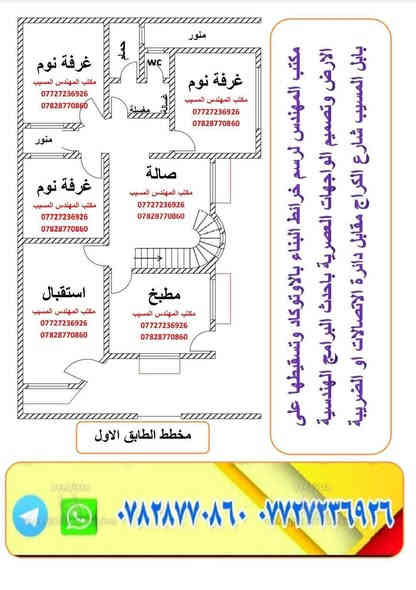 منور
غرفة نوم
مكتب المهندس المسيب
07727236926
07828770860
حمام
WC
غرفة نوم
مكتب المهندس المسيب
07727236926
07828770860
مغسلة
غسالة
منور
غرفة نوم
مكتب المهندس المسيب
07727236926
07828770860
صالة
مكتب المهندس المسيب
07727236926
07828770860
استقبال
مكتب المهندس المسيب
07727236926
07828770860
مطبخ
مكتب المهندس المسيب
07727236926
07828770860
مخطط الطابق الاول
مكتب المهندس لرسم خرائط البناء بالاوتوكاد وتسقيطها على
الارض وتصميم الواجهات العصرية باحدث البرامج الهندسية
بابل المسيب شارع الكراج مقابل دائرة الاتصالات او الضريبة
٠٧٨٢٨٧٧٠٨٦٠ ٠٧٧٢٧٢٣٦٩٢٦